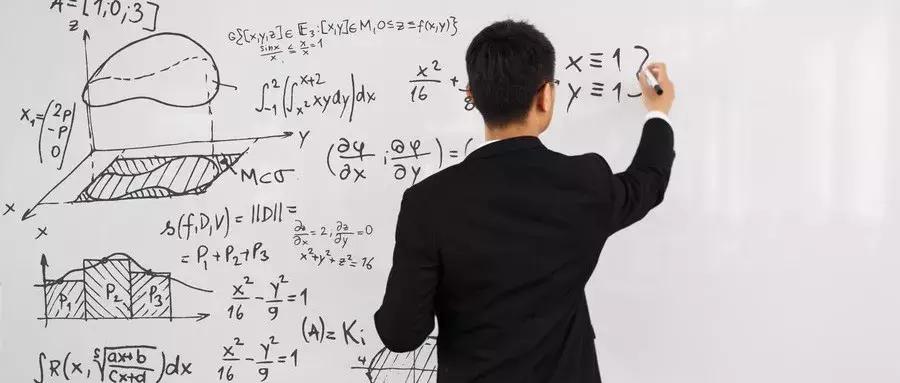 A=[1;0;3]
z
G{[x,y,z]∈E₃:[x,y]∈M,0≤z≤f(x,y)}
sinx/x ≤ x/x = 1
∫₋₁²(∫ₓ²ˣ⁺² xydy)dx
x²/16 +
x ≡ 1
y ≡ 1
x₁=(2p -p 0)
y
x
M⊂σ
(∂φ/∂x ; ∂φ/∂y)=(
x
s(f,D,V)=||D||=
=P₁+P₂+P₃
∂z/∂x=2; ∂z/∂y=0
x²+y²+z²=16
P₁ P₂ P₃
x²/16 - y²/9 = 1
(A)=Ki
∫R(x, ⁵√(ax+b/cx+d))dx
x²/16 - y²/9 = 1
4